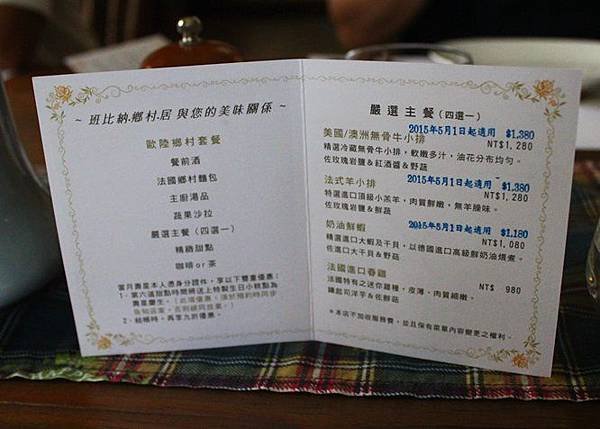 ~ 班比納.鄉村.居 與您的美味關係 ~
歐陸鄉村套餐
餐前酒
法國鄉村麵包
主廚湯品
蔬果沙拉
嚴選主餐（四選一）
精緻甜點
咖啡or茶
當月壽星本人憑身分證件，享以下雙重優惠：
1、第六道甜點時間將送上特製生日小糕點為
壽星慶生。
2、結帳時，再享九折優惠。
嚴選主餐（四選一）
2015年5月1日起適用 $1,380
美國/澳洲無骨牛小排 NT$1,280
精選冷藏無骨牛小排，軟嫩多汁，油花分布均勻。
佐玫瑰岩鹽&紅酒醬&野蔬
2015年5月1日起適用 $1,380
法式羊小排 NT$1,280
特選進口頂級小羔羊，肉質鮮嫩，無羊臊味。
佐玫瑰岩鹽&鮮蔬
2015年5月1日起適用 $1,180
奶油鮮蝦 NT$1,080
精選進口大蝦及干貝，以德國進口高級鮮奶油煨煮。
佐進口大干貝&野蔬
法國進口春雞 NT$ 980
法國特有之迷你雞種，皮薄、肉質細嫩。
鑲起司洋芋&佐鮮菇
＊本店不加收服務費，並且保有菜單內容變更之權利。